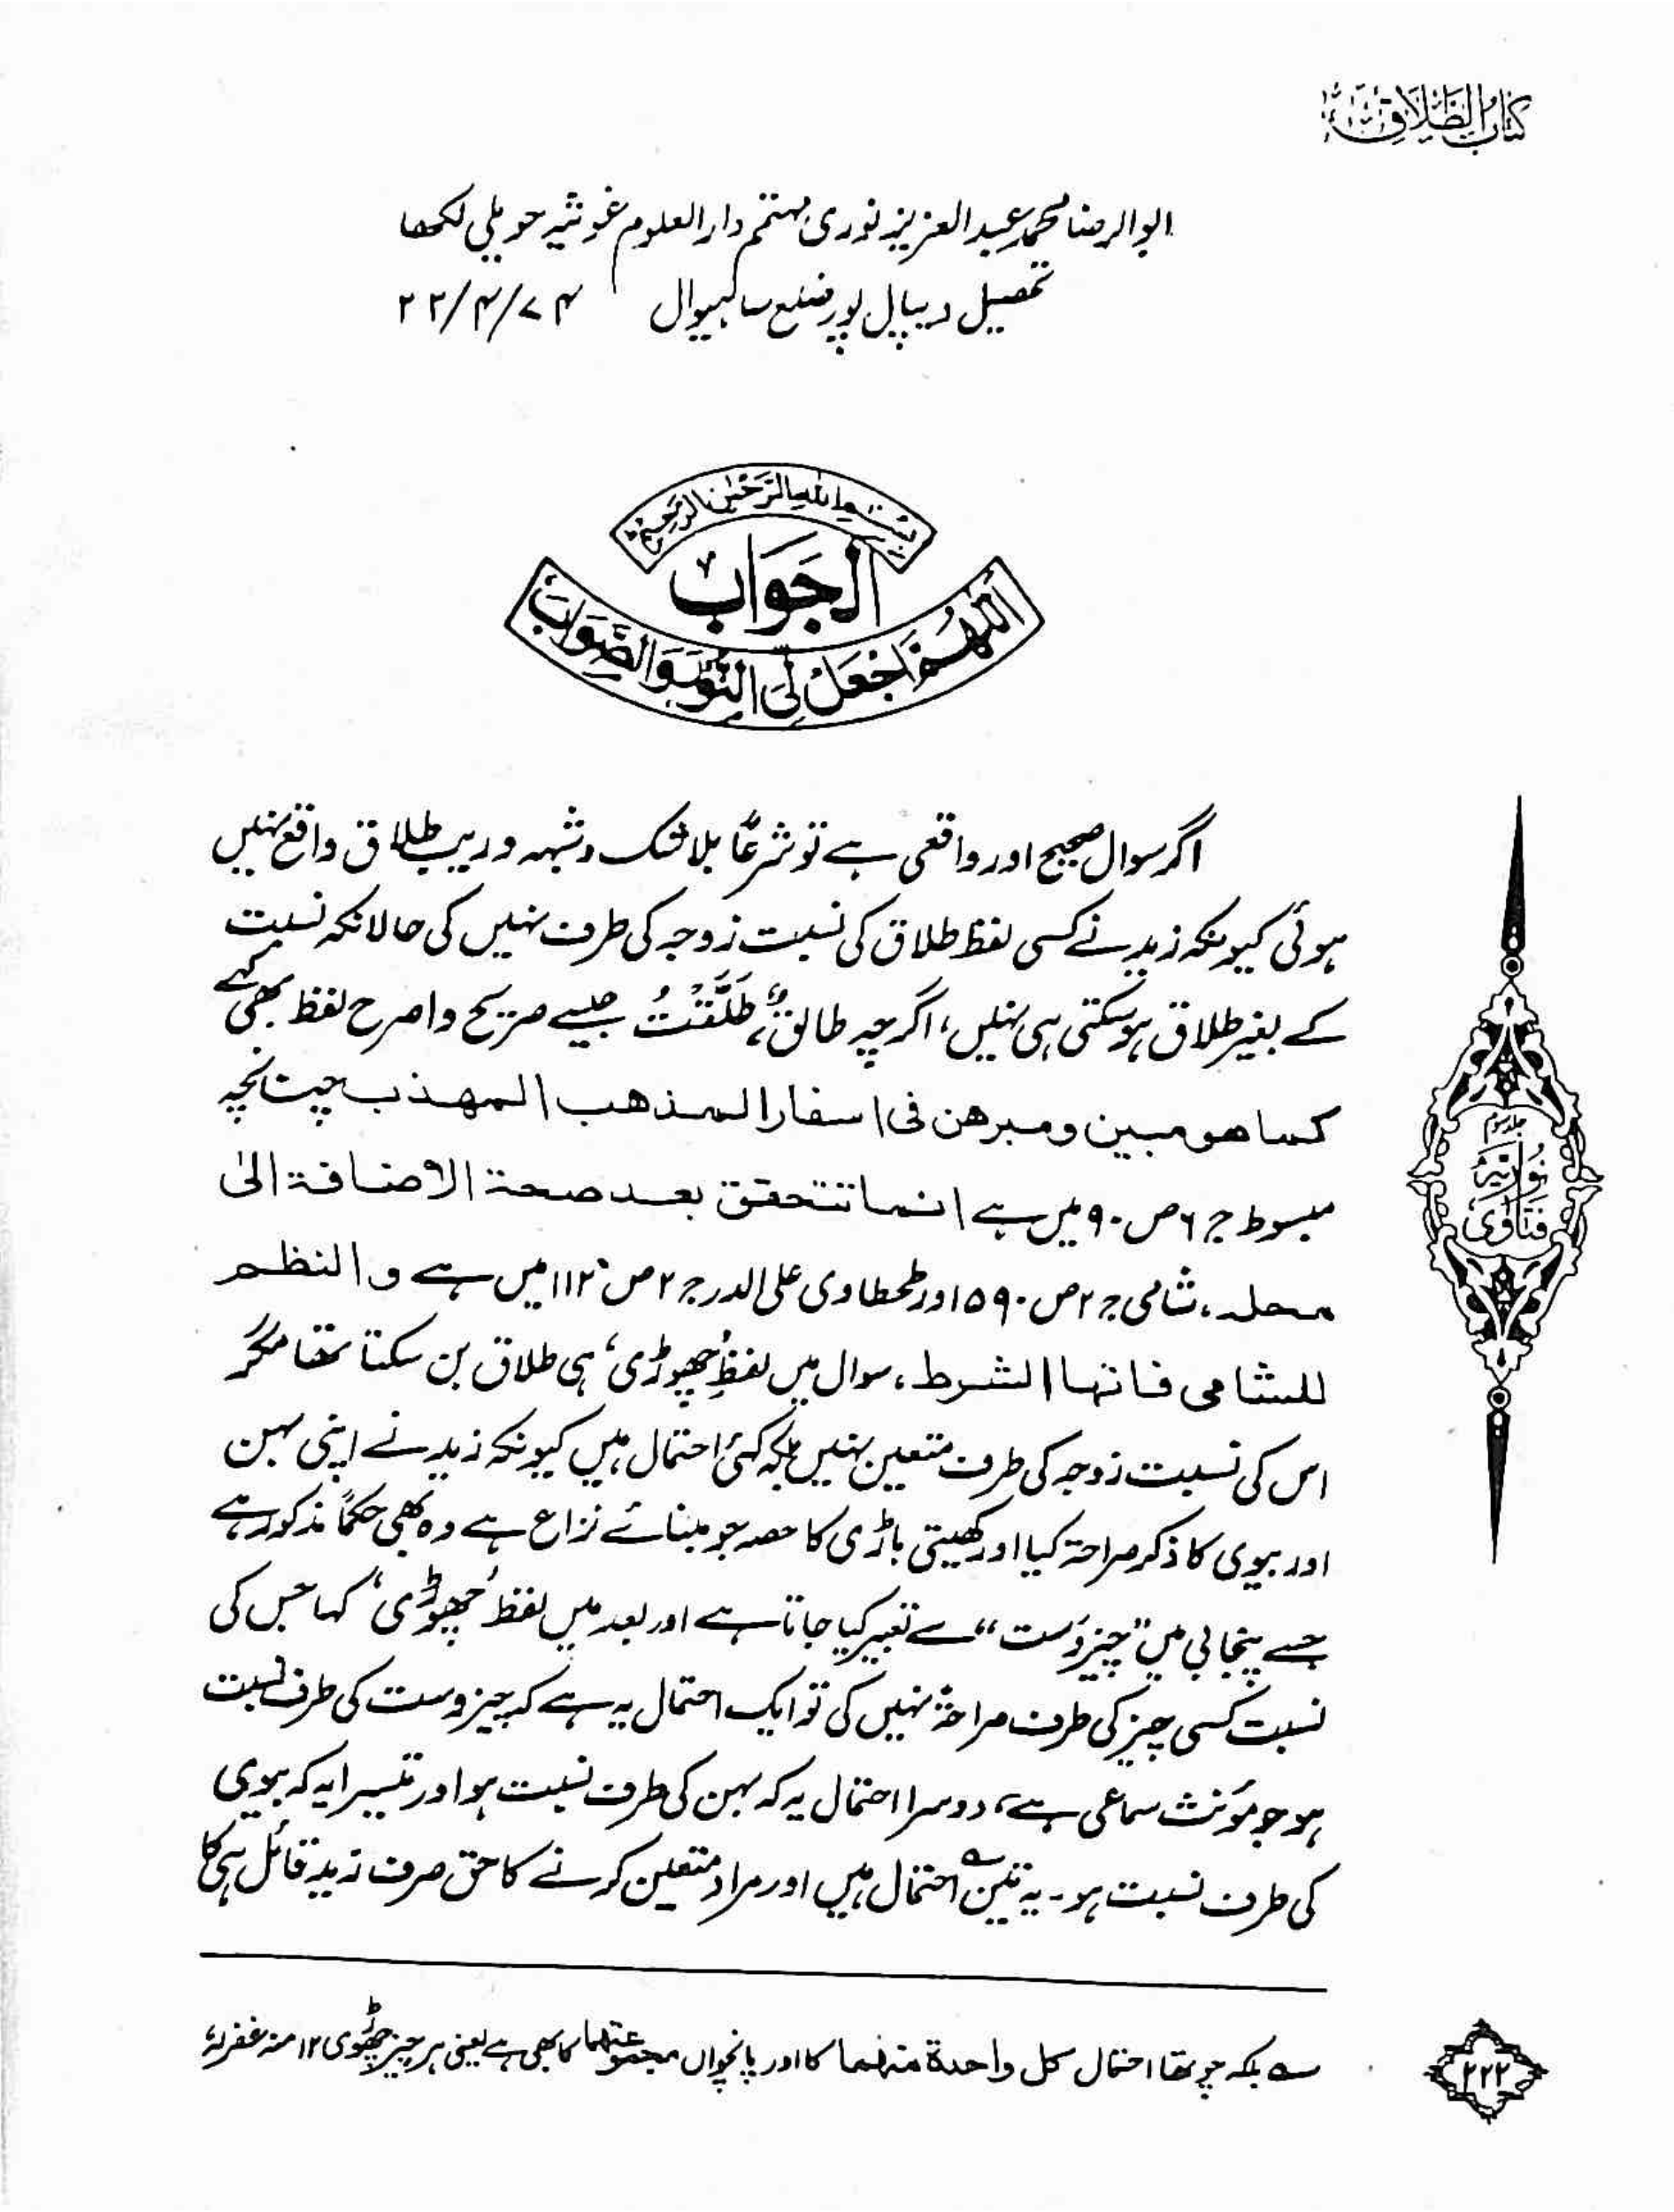 کتاب الطلاق
ابوالرضا محمد عبدالعزیز نوری مہتمم دارالعلوم غوثیہ حویلی لکھا
تحصیل دیپالپور ضلع ساہیوال ۲۲/۴/۷۴
بسم الله الرحمن الرحیم
الجواب
اللهم اجعل لی النور والصواب
اگر سوال صحیح اور واقعی ہے تو شرعًا بلا شک و شبہہ و ریب طلاق واقع نہیں
ہوئی کیونکہ زید نے کسی لفظ طلاق کی نسبت زوجہ کی طرف نہیں کی حالانکہ نسبت
کے بغیر طلاق ہو سکتی ہی نہیں، اگرچہ طالقٌ، طَلَّقْتُ جیسے صریح و اصرح لفظ بھی کہے
کما هو مبین و مبرهن فی اسفار المذهب المهذب چنانچہ
مبسوط ج ۶ ص ۹۰ میں ہے انما تتحقق بعد صحة الاضافة الیٰ
محله، شامی ج ۲ ص ۵۹۰ اور طحطاوی علی الدر ج ۲ ص ۱۱۲ میں ہے و النظم
للشامی فانها الشرط، سوال میں لفظِ ’چھوڑی‘ ہی طلاق بن سکتا تھا مگر
اس کی نسبت زوجہ کی طرف متعین نہیں بلکہ کئی احتمال ہیں کیونکہ زید نے اپنی بہن
اور بیوی کا ذکر صراحۃ کیا اور کھیتی باڑی کا حصہ جو مبنائے نزاع ہے وہ بھی حکمًا مذکور ہے
جسے پنجابی میں ”چیز وَست“ سے تعبیر کیا جاتا ہے اور بعد میں لفظ ’چھوڑی‘ کہا جس کی
نسبت کسی چیز کی طرف صراحۃً نہیں کی تو ایک احتمال یہ ہے کہ چیز وست کی طرف نسبت
ہو جو مؤنث سماعی ہے، دوسرا احتمال یہ کہ بہن کی طرف نسبت ہو اور تیسرا یہ کہ بیوی
کی طرف نسبت ہو۔ یہ تین احتمال ہیں اور مراد متعین کرنے کا حق صرف زید قائل ہی کا
ے بلکہ چوتھا احتمال کل واحدة منهما کا اور پانچواں مجموعتهما کا بھی ہے یعنی ہر چیز چھوڑی ۱۲ منہ غفرلہٗ
جلد سوم
نوریہ
فتاوی
۲۲۲